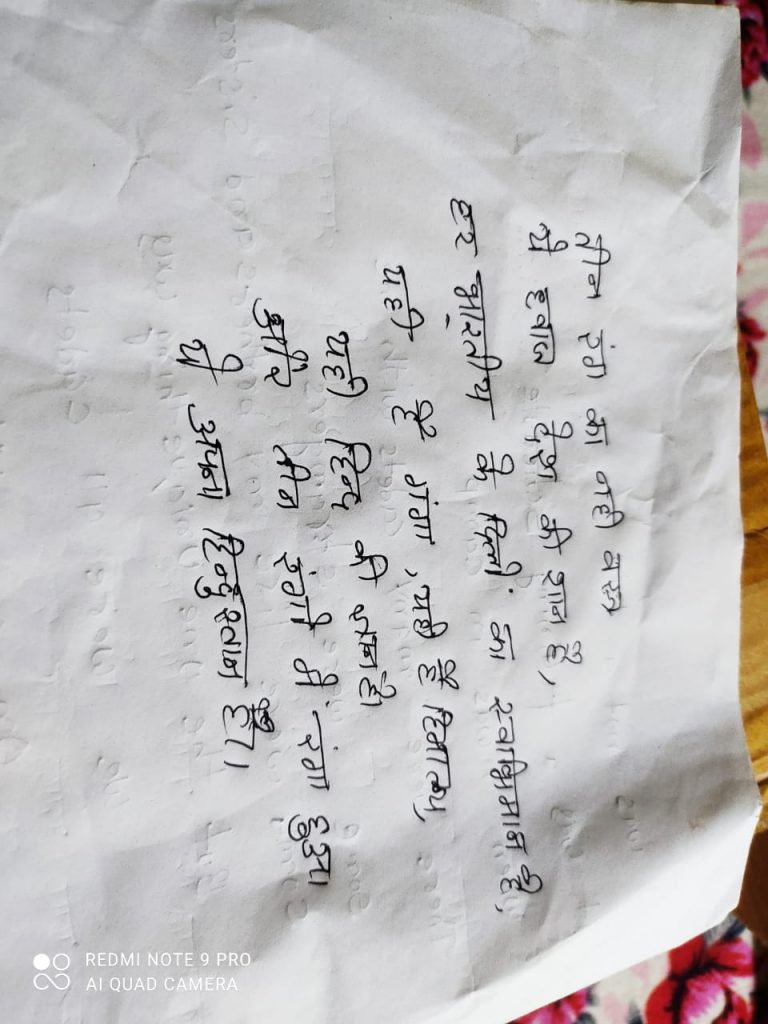 तीन रंग का नही वस्त्र
ये ध्वज देश की शान है,
हर भारतीय के दिलो का स्वाभिमान है,
यही है गंगा, यही है हिमालय,
यही हिन्द की जान है।
और तीन रंगो में रंगा हुआ
ये अपना हिन्दुस्तान है।
REDMI NOTE 9 PRO
AI QUAD CAMERA